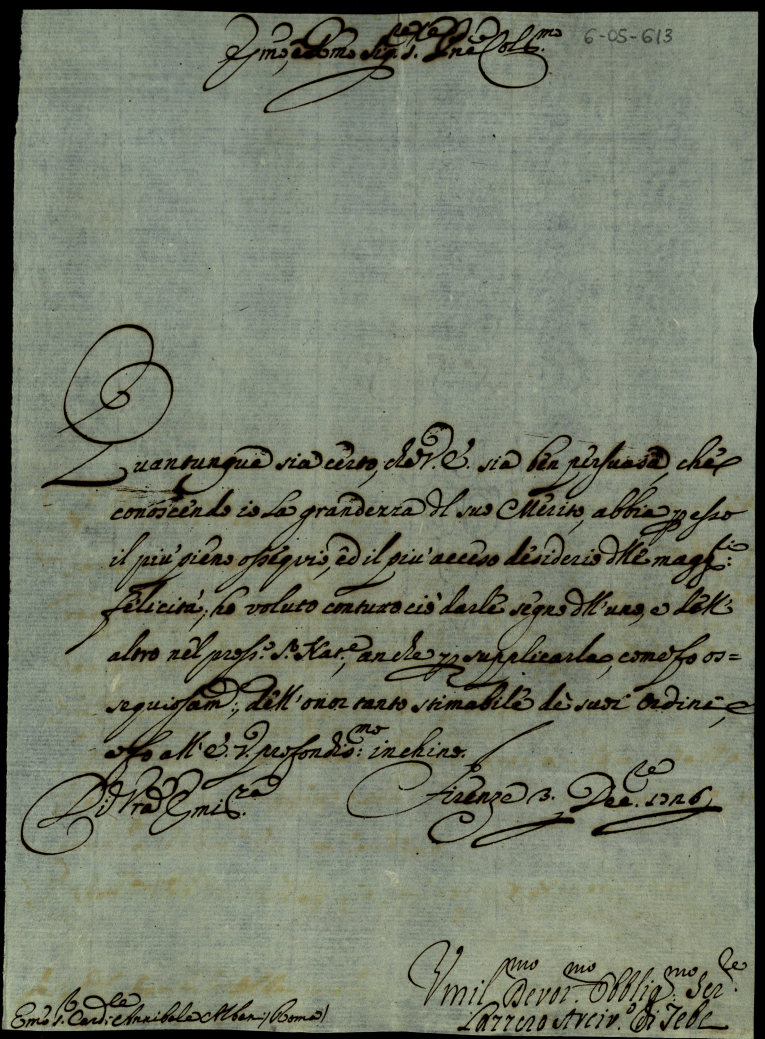 Em̃o, e Rm̃o Sig.re S.re Pne Col.mo
6-05-613
Quantunque sia certo, che V. E. sia ben persuasa, che
conoscendo io la grandezza del suo Merito, abbia p esso
il più pieno ossequio, ed il più acceso desiderio delle magg.ri:
felicità; ho voluto contuttociò darle segno dell'uno, e dell'
altro nel pross.o S.to Nat.e, anche p supplicarla, come fo os=
sequiosam.te, dell'onor tanto stimabile de suoi Ordini, e
fo all'E. V. profondiss.mo: inchino.
Di Vr̃a Emi.za Firenze 3. Dec.re 1726
Umil.mo Devot.mo Obblig.mo Ser.re
Arciv.o di Tebe
Em̃o S. Card.le Annibale Albani (Roma)